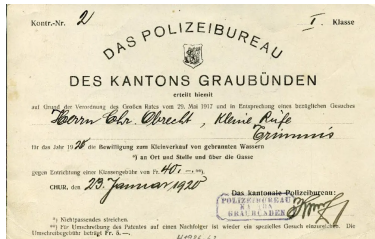 Kontr.-Nr. 2 I. Klasse
DAS POLIZEIBUREAU
DES KANTONS GRAUBÜNDEN
erteilt hiemit
auf Grund der Verordnung des Großen Rates vom 29. Mai 1917 und in Entsprechung eines bezüglichen Gesuches
Herrn Chr. Obrecht, Kleine Rüfe
Trimmis
für das Jahr 1920 die Bewilligung zum Kleinverkauf von gebrannten Wassern
*) an Ort und Stelle und über die Gasse
gegen Entrichtung einer Klassengebühr von Fr. 40.—
CHUR, den 23. Januar 1920
Das kantonale Polizeibureau:
POLIZEIBUREAU
GRAUBÜNDEN
*) Nichtpassendes streichen.
**) Für Umschreibung des Patentes auf einen Nachfolger ist wieder ein spezielles Gesuch einzureichen. Die
Umschreibegebühr beträgt Fr. 5.—.